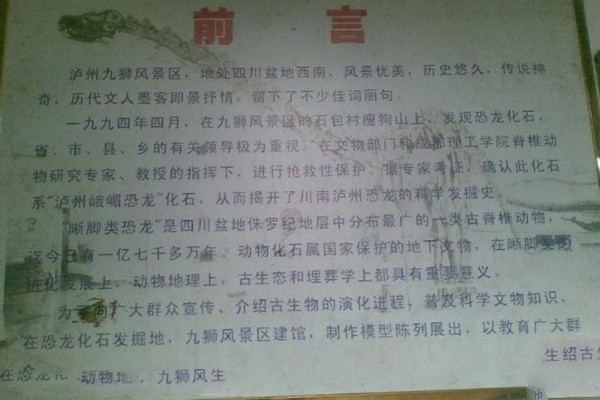 前言
泸州九狮风景区，地处四川盆地西南，风景优美，历史悠久，传说神
奇，历代文人墨客即景抒情，留下了不少佳词丽句。
一九九四年四月，在九狮风景区的石包村瘦狗山上，发现恐龙化石，
省、市、县、乡的有关领导极为重视，在文物部门和成都理工学院脊椎动
物研究专家、教授的指挥下，进行抢救性保护，据专家考证，确认此化石
系“泸州峨嵋恐龙”化石，从而揭开了川南泸州恐龙的科学发掘史。
“晰脚类恐龙”是四川盆地侏罗纪地层中分布最广的一类古脊椎动物，
迄今已有一亿七千多万年，动物化石属国家保护的地下文物，在晰脚类的
进化发展上，动物地理上，古生态和埋葬学上都具有重要意义。
为了向广大群众宣传、介绍古生物的演化进程，普及科学文物知识，
在恐龙化石发掘地，九狮风景区建馆，制作模型陈列展出，以教育广大群
生绍古生
在恐龙化 动物地，九狮风生
市